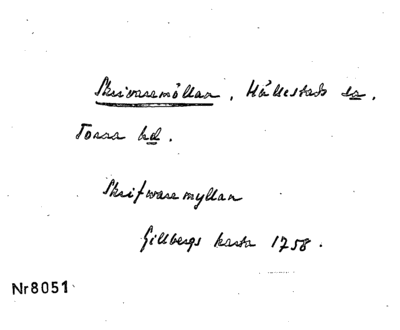 Skrivaremöllan, Hällestads sn,
Torna hd.
Skrifvaremyllan
Gillbergs karta 1758.
Nr8051